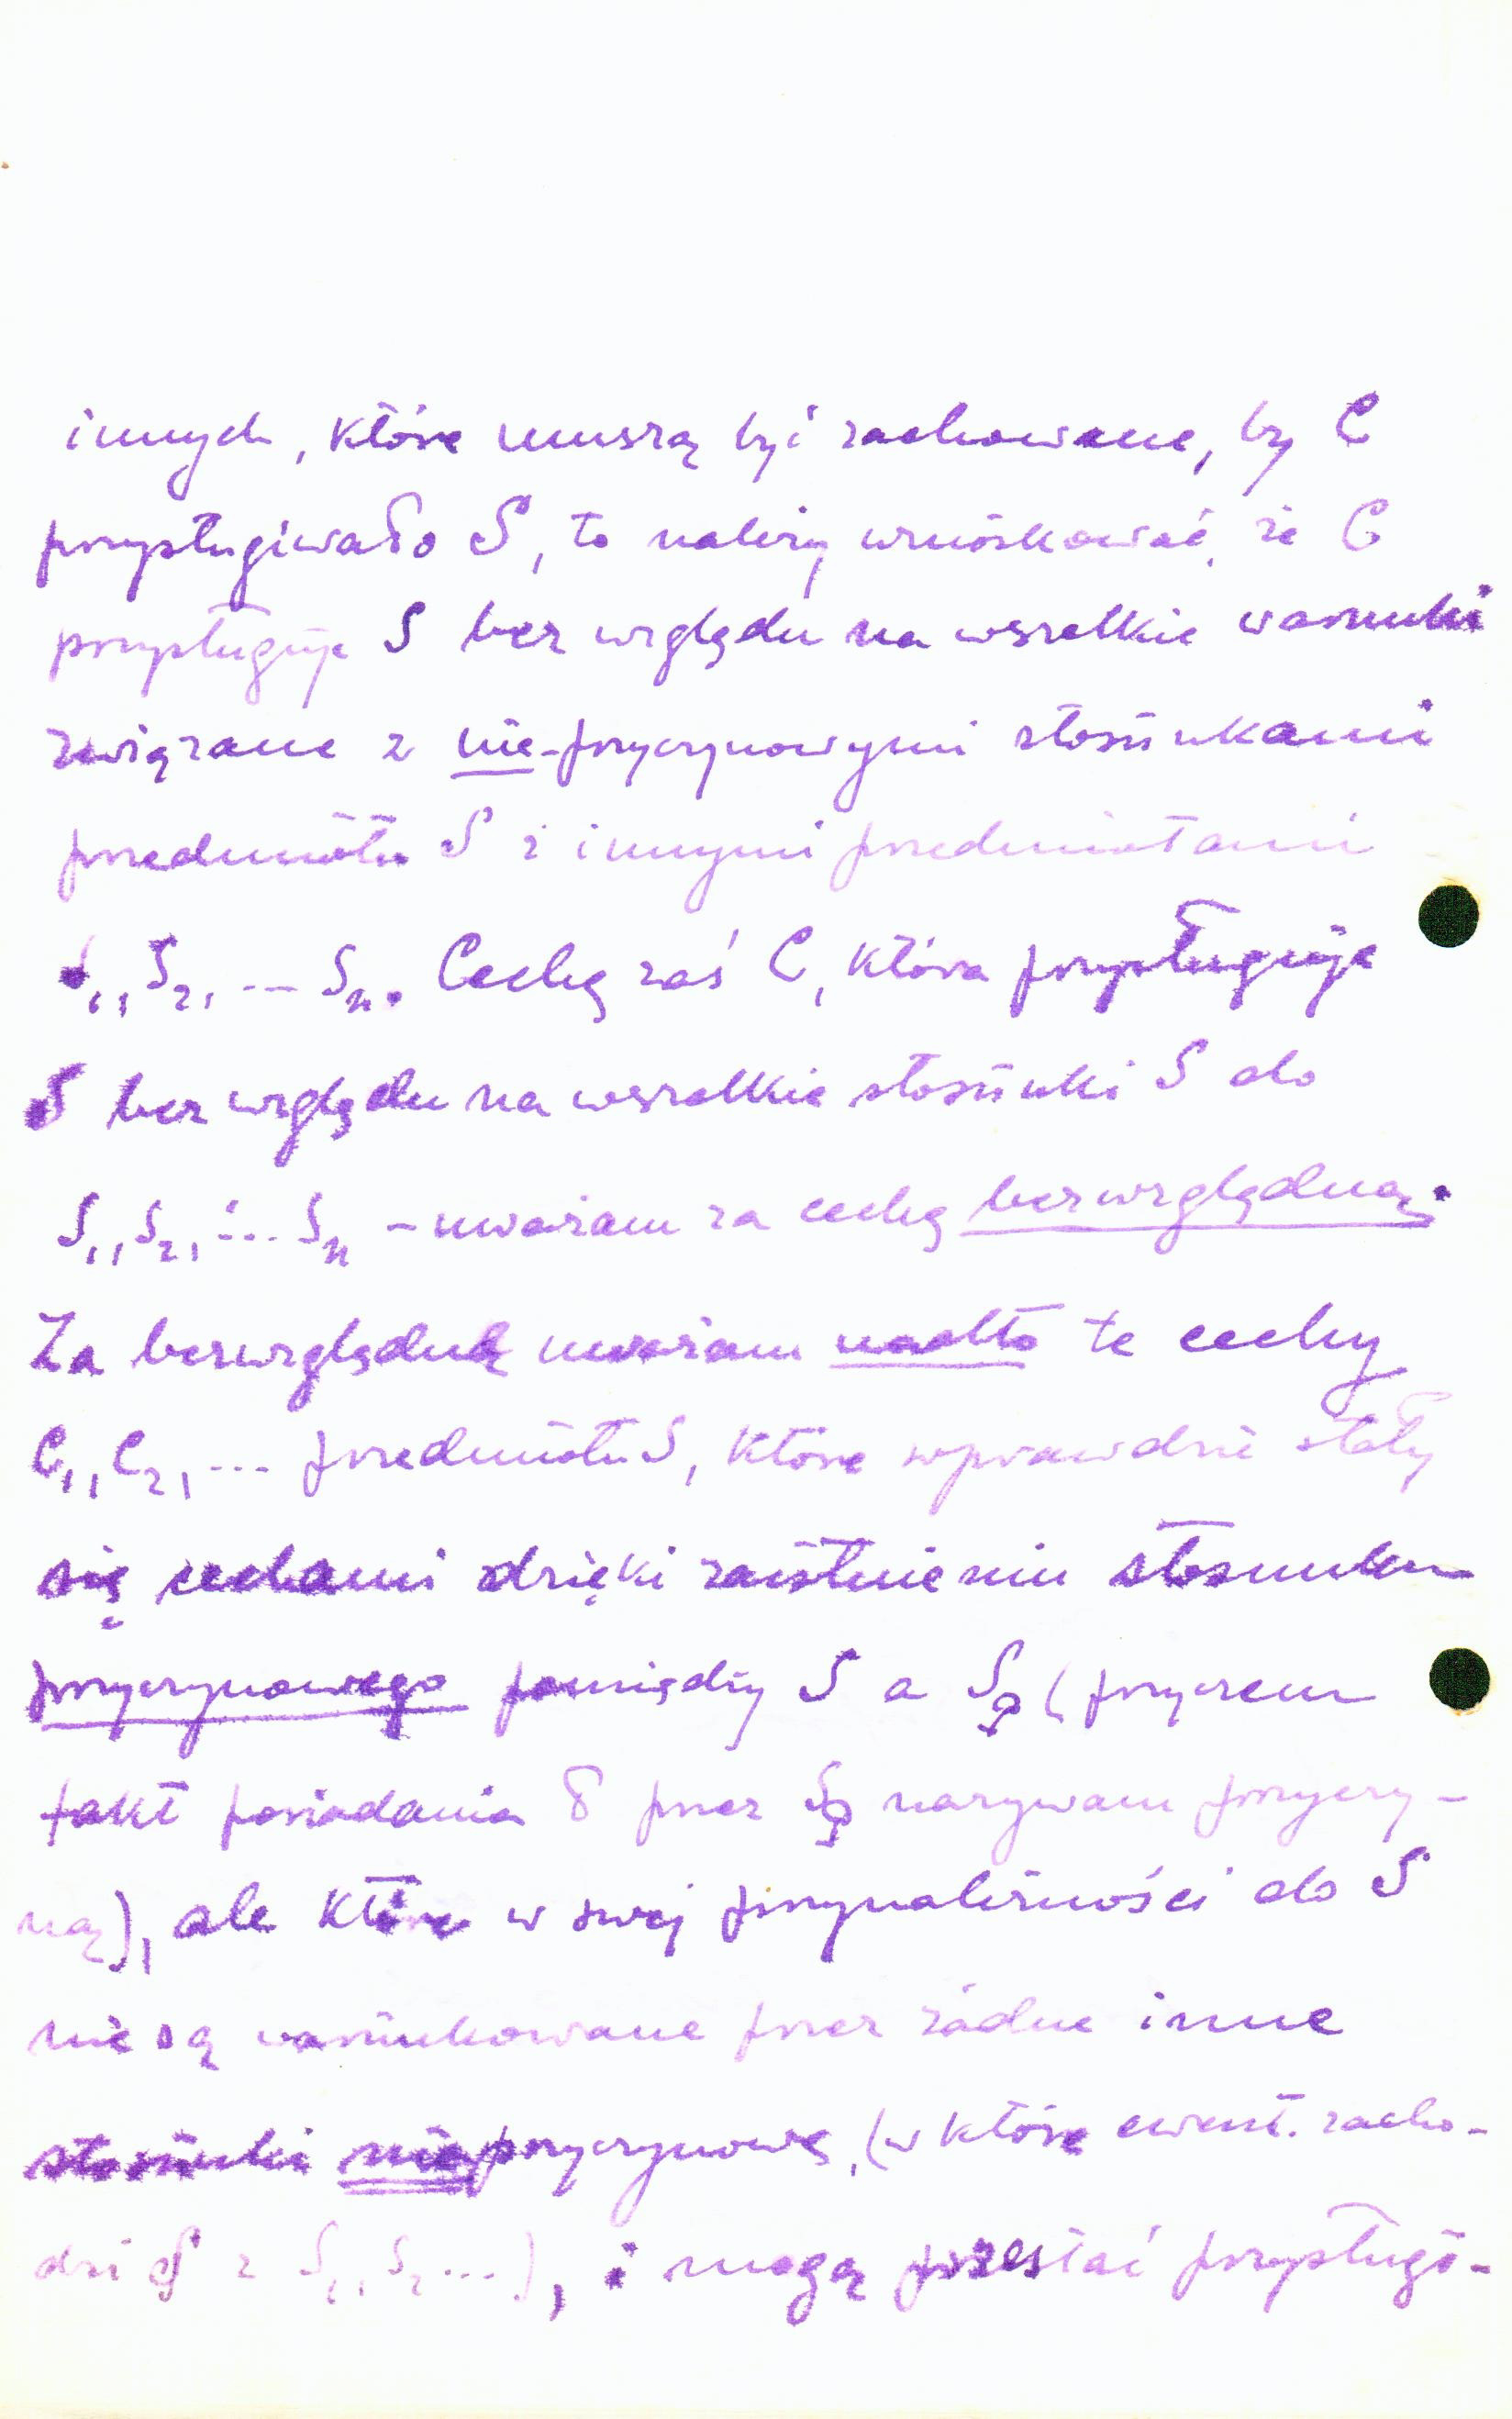 innych, które muszą być zachowane, by C
przysługiwało S, to należy wnioskować, że C
przysługuje S bez względu na wszelkie warunki
związane z nie-przyczynowymi stosunkami
przedmiotu S z innymi przedmiotami
S₁, S₂, ... Sₙ. Cechę zaś C, która przysługuje
S bez względu na wszelkie stosunki S do
S₁, S₂, ... Sₙ – uważam za cechę bezwzględną.
Za bezwzględne uważam nadto te cechy
C₁, C₂, ... przedmiotu S, które wprawdzie stały
się cechami dzięki zaistnieniu stosunku
przyczynowego pomiędzy S a Sₚ (przyczem
fakt posiadania przez Sₚ nazywam przyczy-
ną), ale które w swej przynależności do S
nie są warunkowane przez żadne inne
stosunki nieprzyczynowe, (w które ewent. zacho-
dzi S z S₁, S₂...), i mogą przestać przysługi-